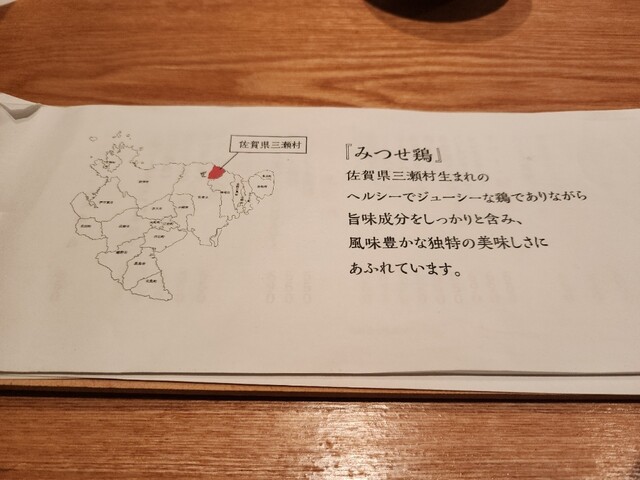 佐賀県三瀬村
『みつせ鶏』
佐賀県三瀬村生まれの
ヘルシーでジューシーな鶏でありながら
旨味成分をしっかりと含み、
風味豊かな独特の美味しさに
あふれています。